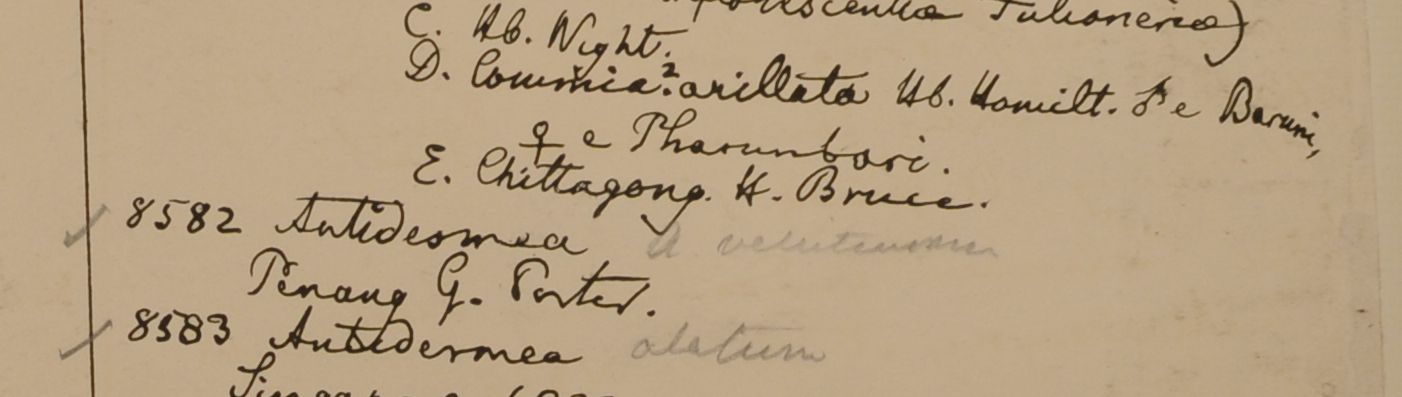 Tulioneria)
C. Hb. Wight.
D. Commia? arillata Hb. Hamilt. e Baruni,
♀ e Tharunbari.
E. Chittagong. H. Bruce.
8582 Antidesmea A velutinosum
Penang G. Porter.
8583 Antidesmea alatum